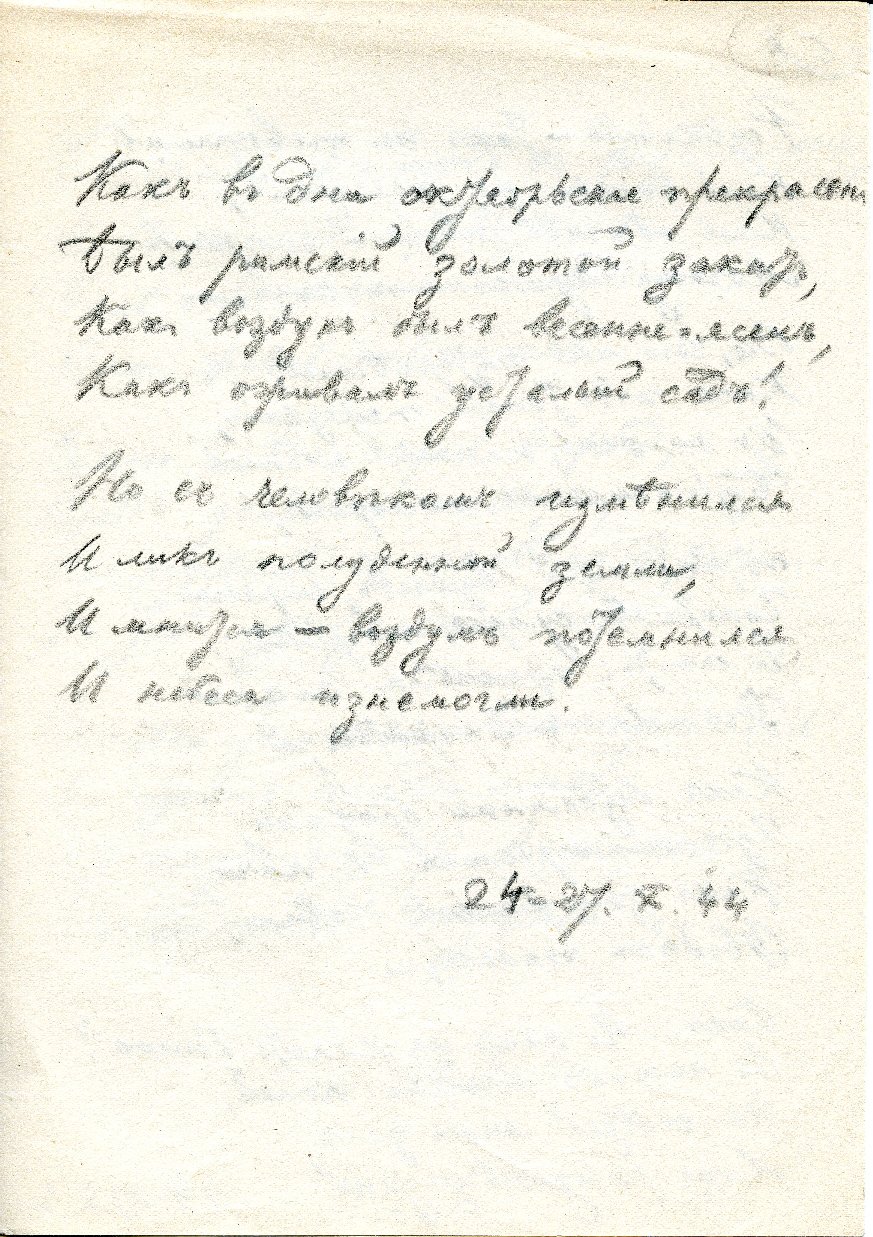 Какъ въ дни октябрьскіе прекрасенъ
Былъ римскій золотой закатъ,
Какъ воздухъ былъ весенне-ясенъ,
Какъ оживалъ усталый садъ!
Но съ человѣкомъ измѣнился
И ликъ полуденной земли,
И мнится — воздухъ потемнился
И небеса изнемогли.
24-27. X. 44